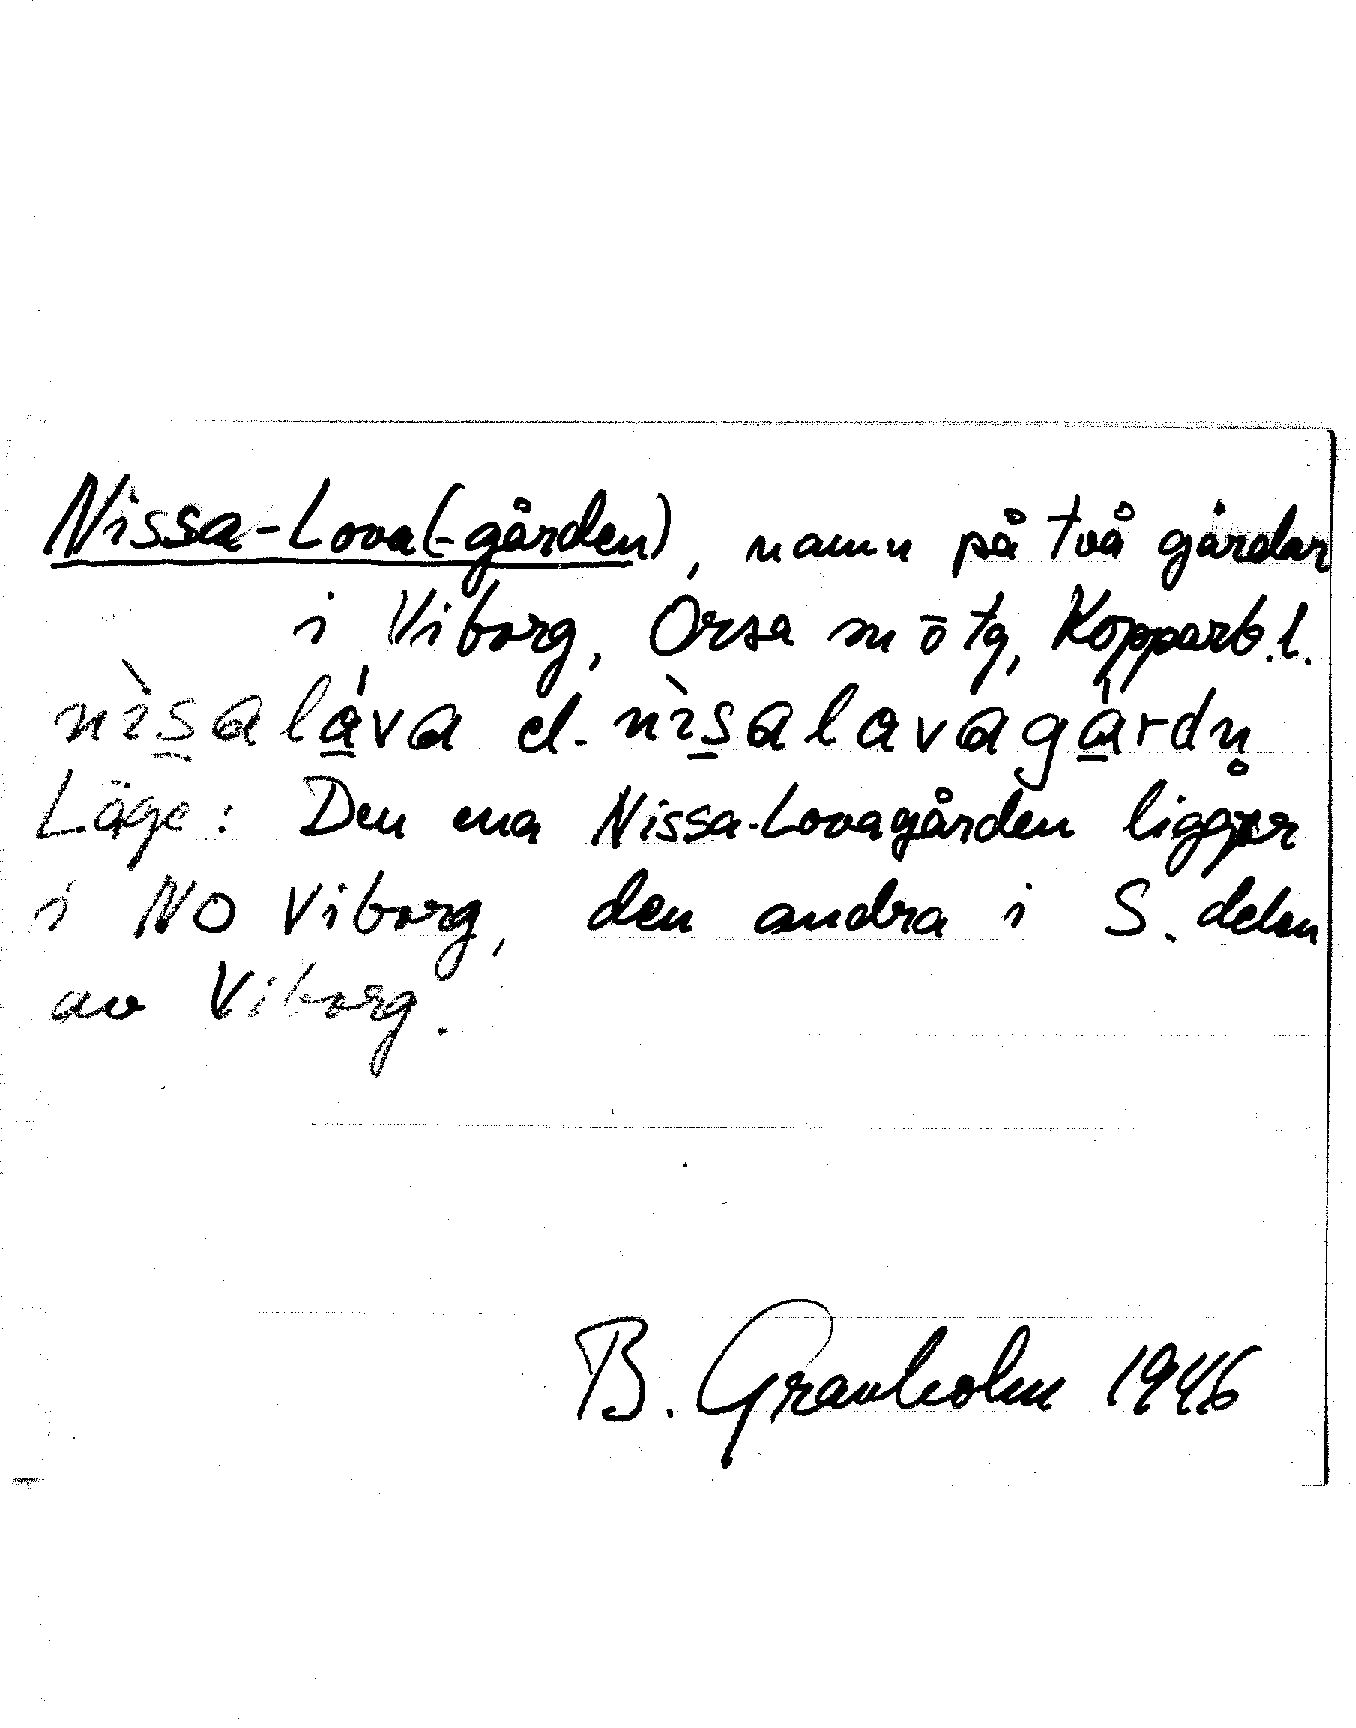 Nissa-Lova(-gården), namn på två gårdar
i Viborg, Orsa sn ö tg, Kopparb.l.
nìsaláva el. nìsalavagárdn̥
Läge: Den ena Nissa-Lovagården ligger
i NO Viborg, den andra i S. delen
av Viborg.
B. Granholm 1946